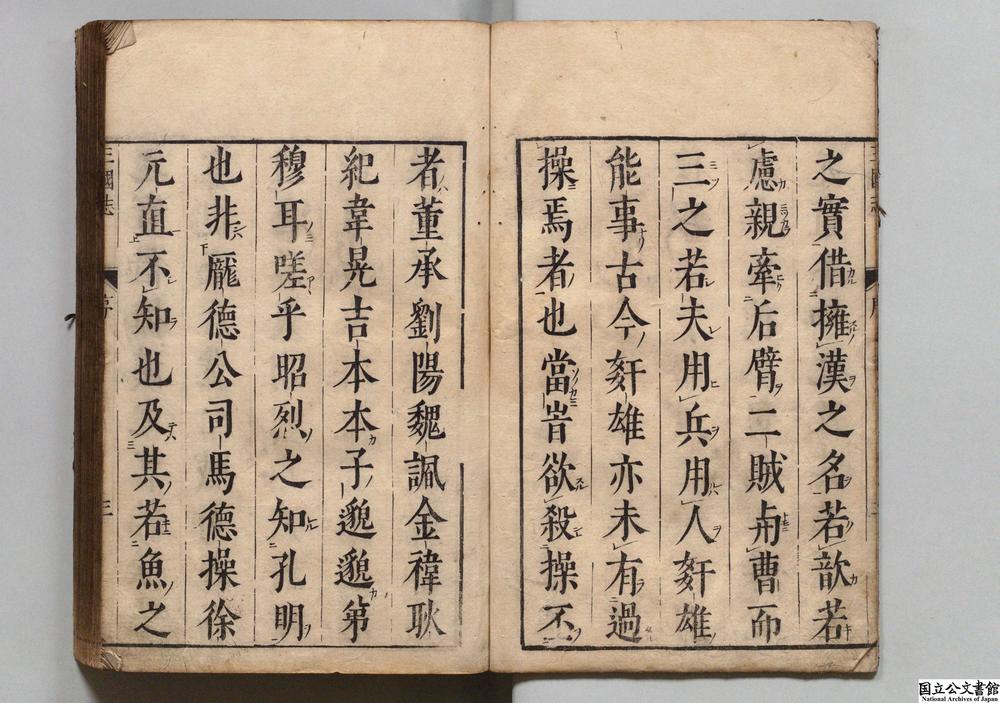 之實借擁漢之名若歆若
慮親牽后臂二賊冉曹而
三之若夫用兵用人姧雄
能事古今姧雄亦未有過
操焉者也當旹欲殺操不
者董承劉陽魏諷金禕耿
紀韋晃吉本本子邈邈第
穆耳嗟乎昭烈之知孔明
也非龐德公司馬德操徐
元直不知也及其若魚之
三國志
序
三
国立公文書館
National Archives of Japan